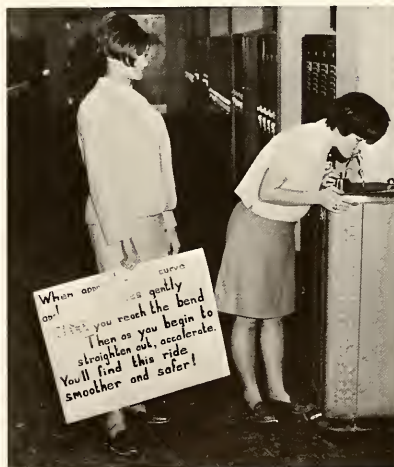 When app curve
gently
you reach the bend
Then as you begin to
straighten out, accelerate.
You'll find this ride
smoother and safer!